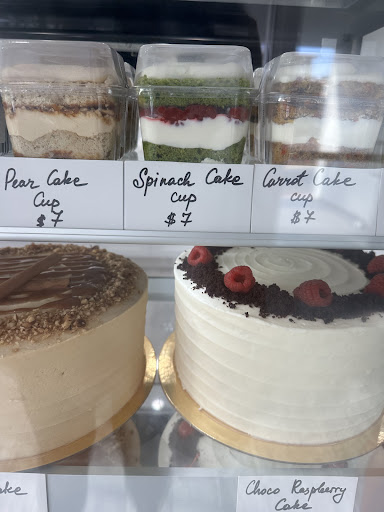 Pear Cake
Cup
$7
Spinach Cake
cup
$7
Carrot Cake
cup
$7
Choco Raspberry
Cake